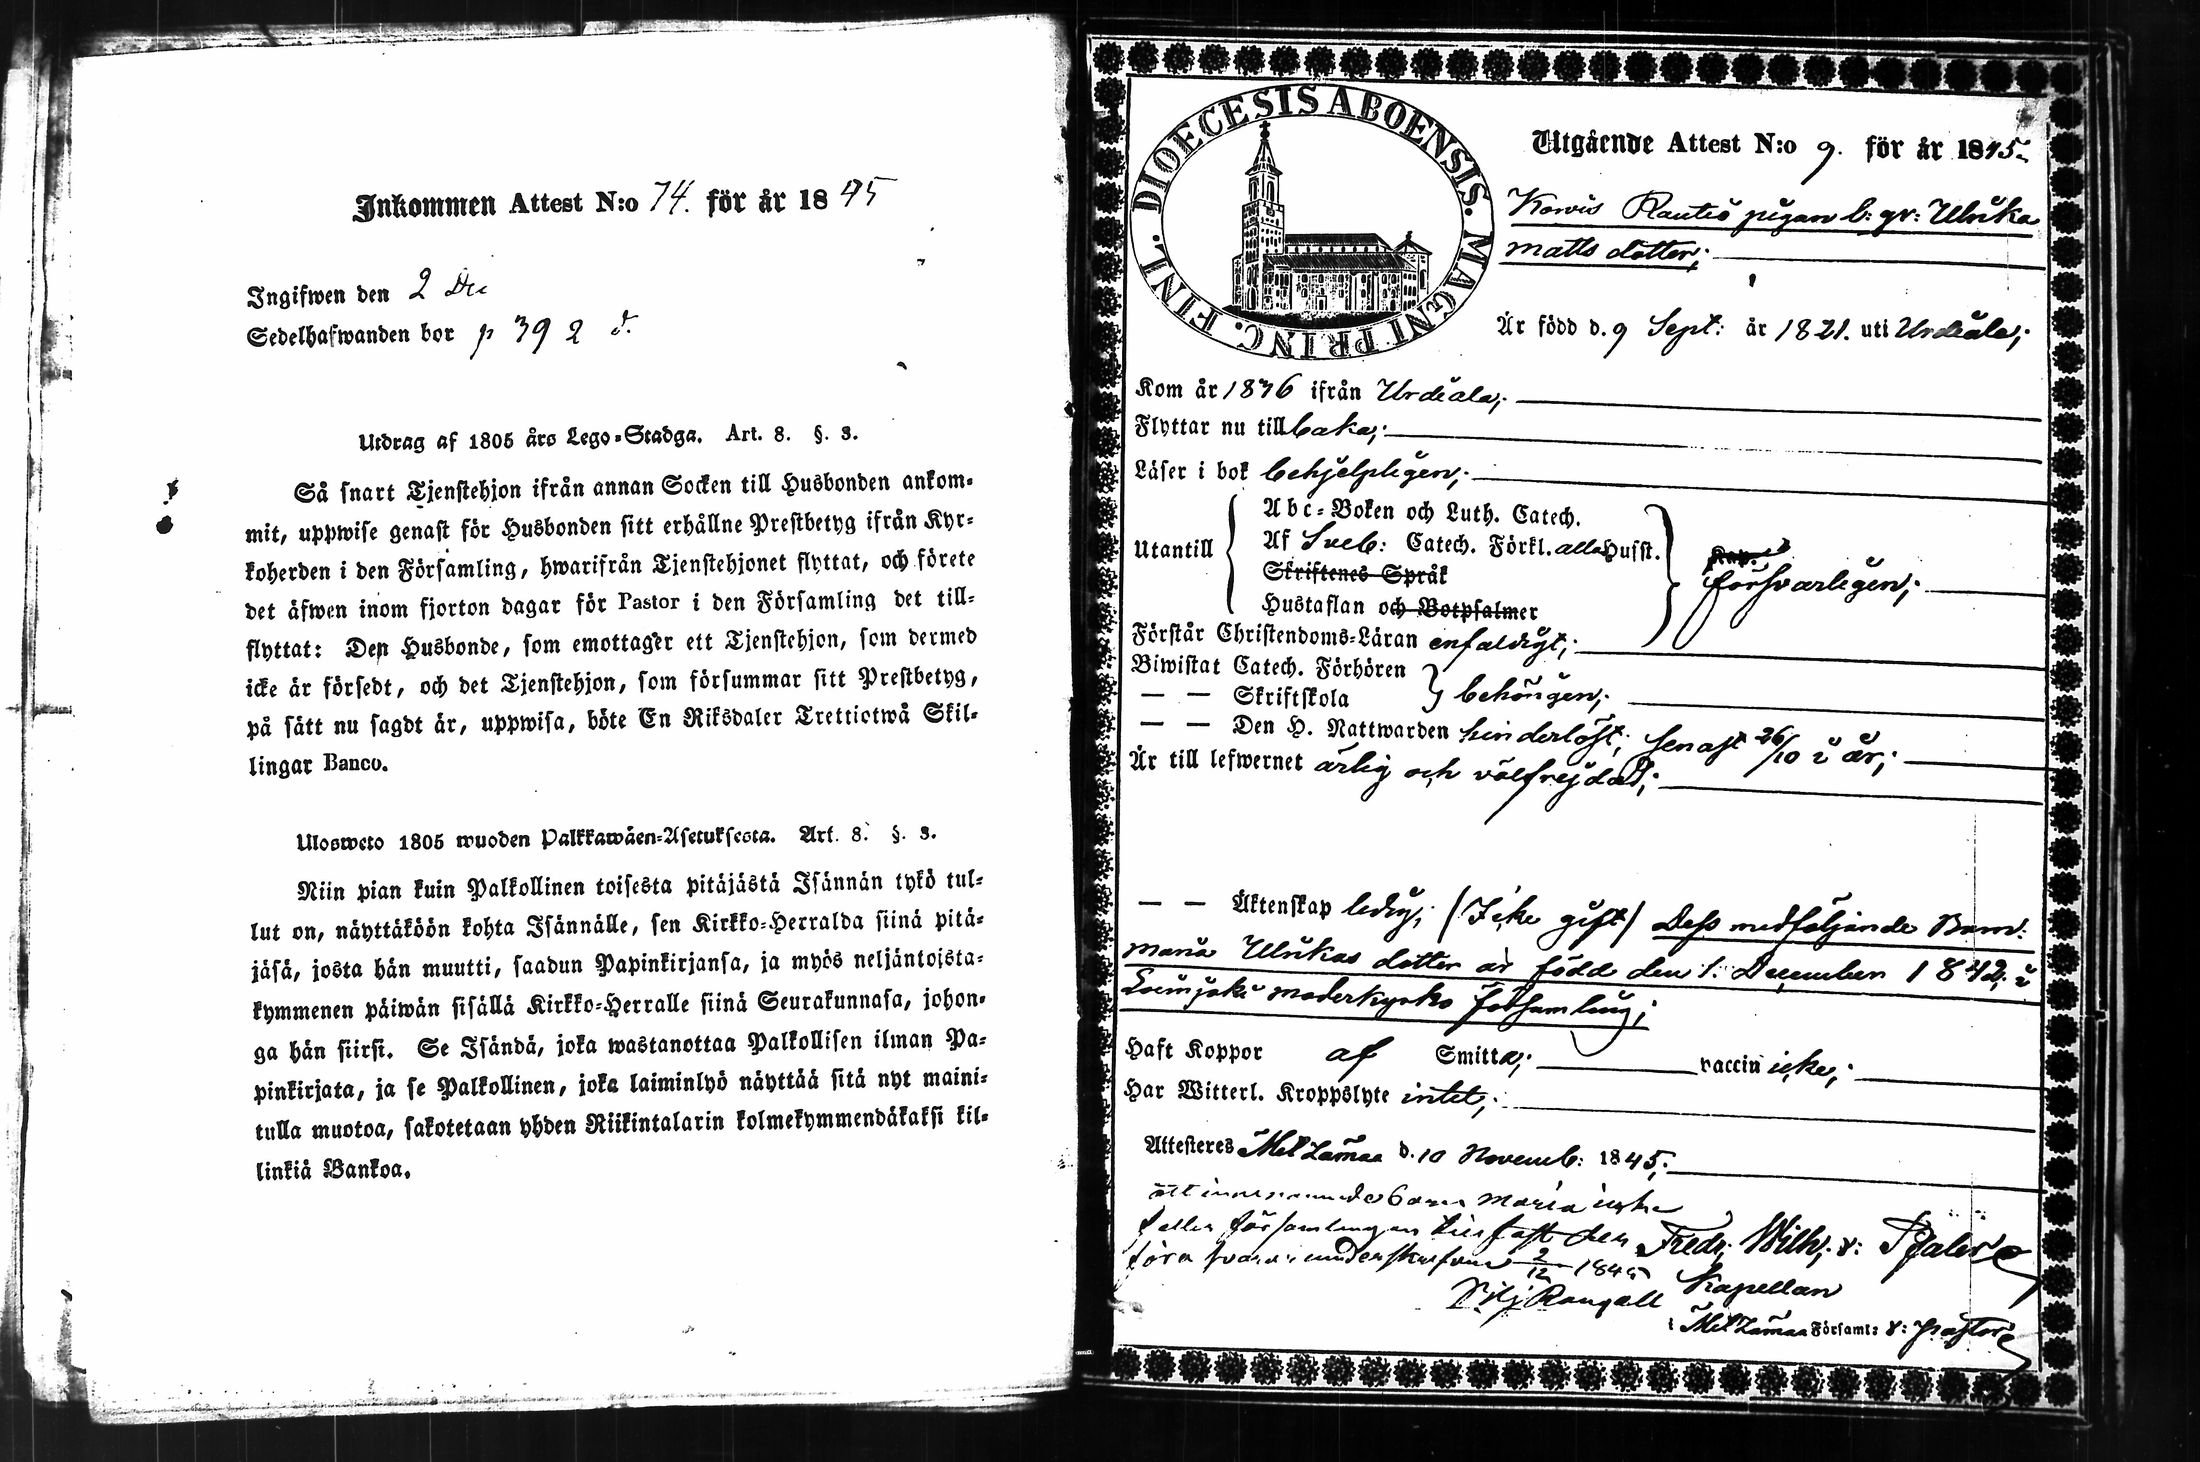 Inkommen Attest N:o 74. för år 1845
Ingifwen den 2 Dec
Sedelhafwanden bor p 392 d.
Utdrag af 1805 års Lego-Stadga. Art. 8. §. 3.
Så snart Tjenstehjon ifrån annan Socken till Husbonden ankom-
mit, uppwise genast för Husbonden sitt erhållne Prestbetyg ifrån Kyr-
koherden i den Församling, hwarifrån Tjenstehjonet flyttat, och förete
det äfwen inom fjorton dagar för Pastor i den Församling det till-
flyttat: Den Husbonde, som emottager ett Tjenstehjon, som dermed
icke är försedt, och det Tjenstehjon, som försummar sitt Prestbetyg,
på sätt nu sagdt är, uppwisa, böte En Riksdaler Trettiotwå Skil-
lingar Banco.
Ulosweto 1805 wuoden Palkkawäen-Asetuksesta. Art. 8. §. 3.
Niin pian kuin Palkollinen toisesta pitäjästä Isännän tykö tul-
lut on, näyttäköön kohta Isännälle, sen Kirkko-Herralda siinä pitä-
jäsä, josta hän muutti, saadun Papinkirjansa, ja myös neljäntoista-
kymmenen päiwän sisällä Kirkko-Herralle siinä Seurakunnasa, johon-
ga hän siirsi. Se Isändä, joka wastanottaa Palkollisen ilman Pa-
pinkirjata, ja se Palkollinen, joka laiminlyö näyttää sitä nyt maini-
tulla muotoa, sakotetaan yhden Riikintalarin kolmekymmendäkaksi kil-
linkiä Bankoa.
FINL. DIOECESIS ABOENSIS. MAGNI PRINC.
Utgående Attest N:o 9. för år 1845
Rautio pigan b: qv: Ulrika
Matts dotter;
Är född d. 9 Sept: år 1821. uti Urdiala;
Kom år 1836 ifrån Urdiala;
Flyttar nu tillbaka;
Läser i bok behjelpligen;
Utantill
Abc-Boken och Luth. Catech.
Af Sveb: Catech. Förkl. alla Husst.
Skriftenes Språk
Hustaflan och Botpsalmer
försvarligen;
Förstår Christendoms-Läran enfaldigt;
Biwistat Catech. Förhören
— — Skriftskola
behörigen;
— — Den H. Nattwarden hinderlöst; senast 26/10 i år;
Är till lefwernet ärlig och välfrejdad;
— — Äktenskap ledig; (Icke gift) Dess medföljande Barn:
Maria Ulrikas dotter är född den 1. December 1842. i
Loimjoki moderkyrko församling;
Haft Koppor af Smitta; vaccin icke;
Har Witterl. Kroppslyte intet;
Attesteres d. 10 Novemb: 1845;
att barn Maria icke
församlingen
2/12 1845
Fredr. Wilh:
Kapellan
i Församl: v: pastor